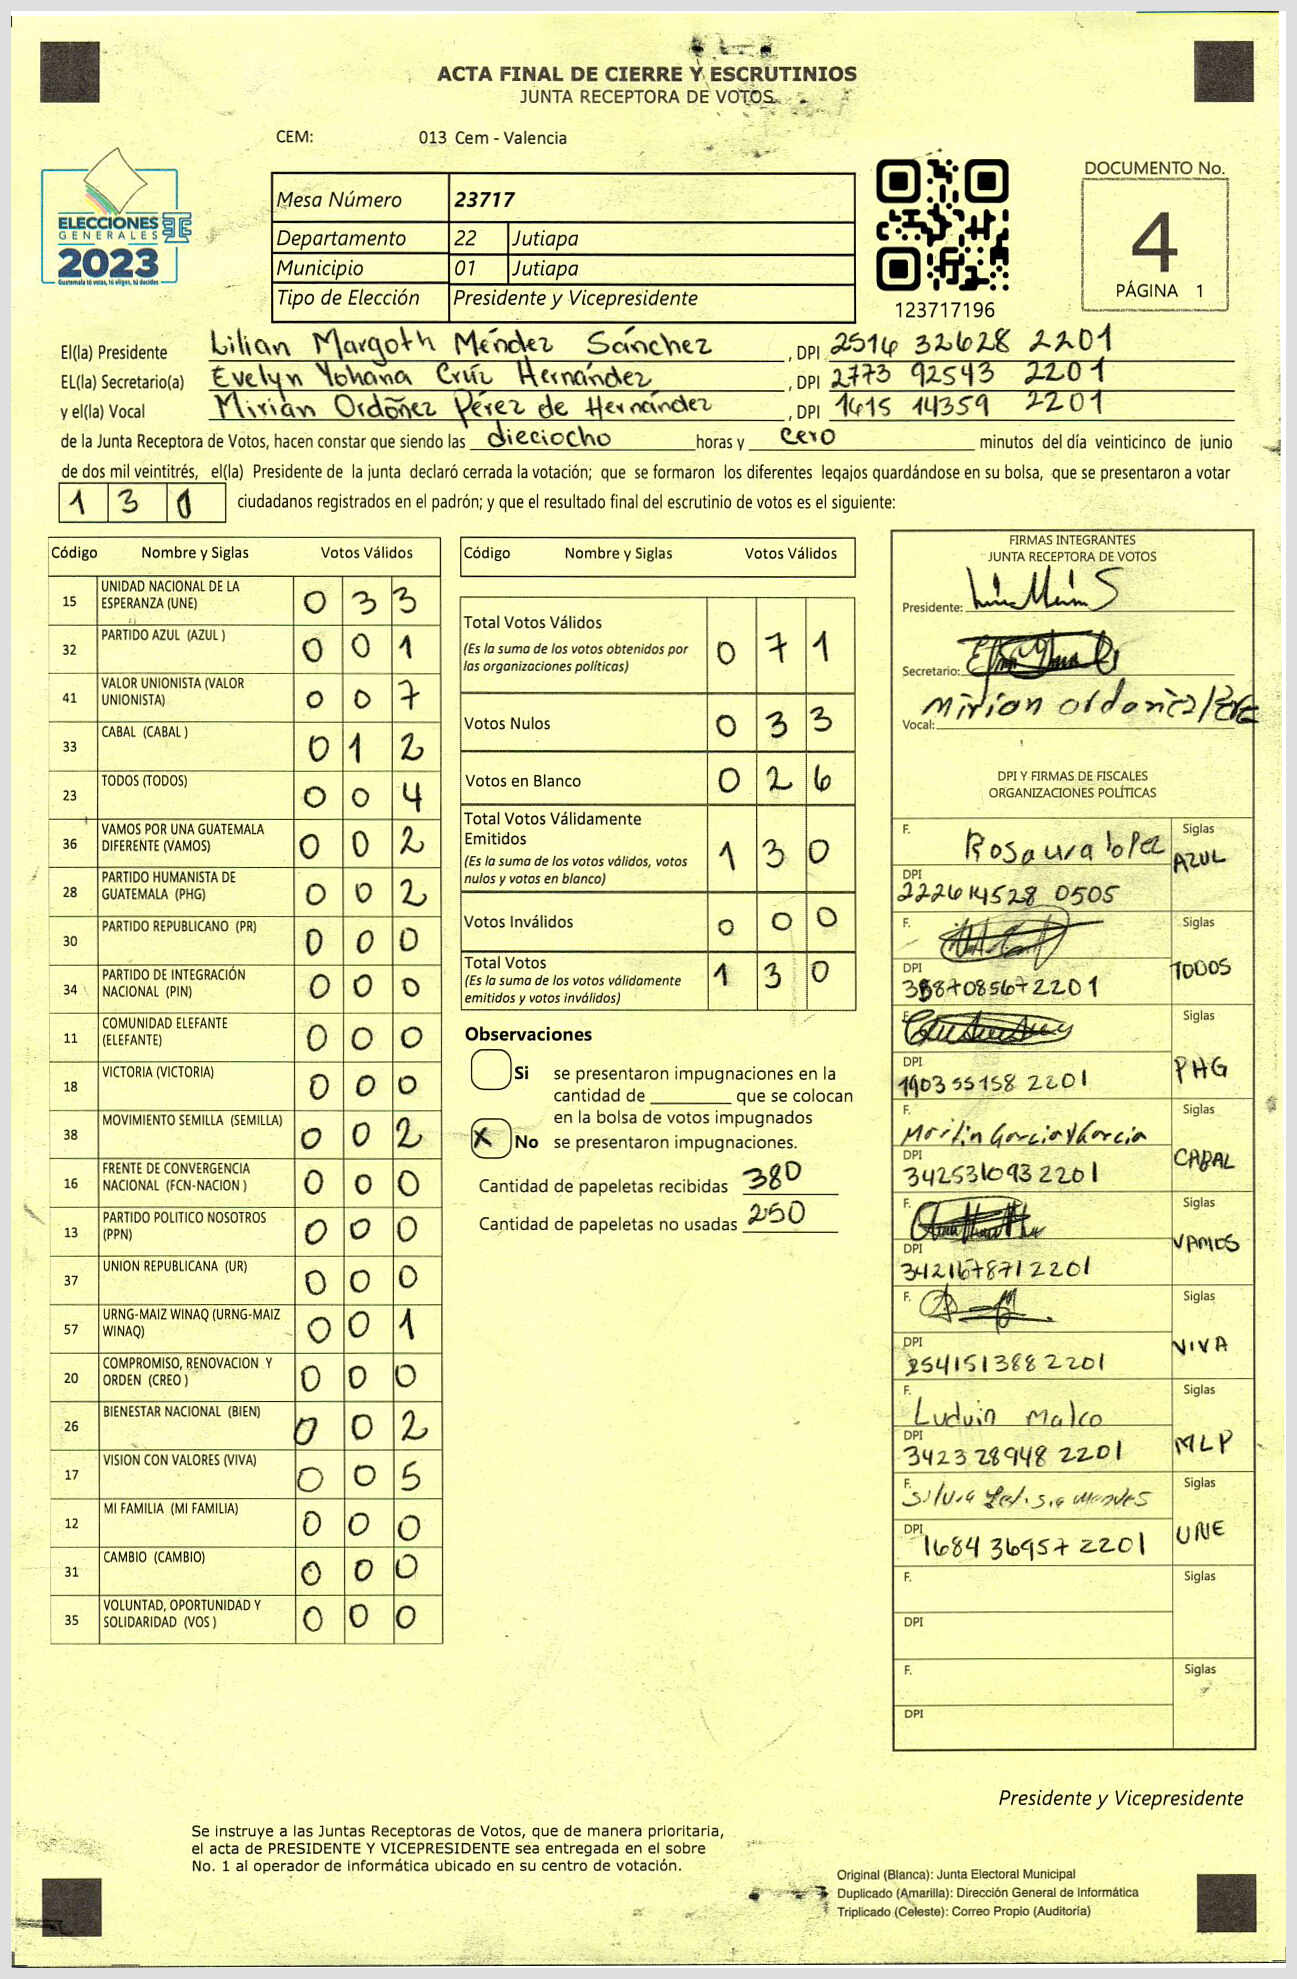 ACTA FINAL DE CIERRE Y ESCRUTINIOS
JUNTA RECEPTORA DE VOTOS
CEM: 013 Cem - Valencia
ELECCIONES
GENERALES
2023
Guatemala tú votas, tú eliges, tú decides
Mesa Número 23717
Departamento 22 Jutiapa
Municipio 01 Jutiapa
Tipo de Elección Presidente y Vicepresidente
123717196
DOCUMENTO No.
4
PÁGINA 1
El(la) Presidente Lilian Margoth Méndez Sánchez, DPI 2516 32628 2201
EL(la) Secretario(a) Evelyn Yohana Cruz Hernández, DPI 2773 92543 2201
y el(la) Vocal Mirian Ordóñez Pérez de Hernández, DPI 1615 14359 2201
de la Junta Receptora de Votos, hacen constar que siendo las dieciocho horas y cero minutos del día veinticinco de junio
de dos mil veintitrés, el(la) Presidente de la junta declaró cerrada la votación; que se formaron los diferentes legajos guardándose en su bolsa, que se presentaron a votar
1 3 0 ciudadanos registrados en el padrón; y que el resultado final del escrutinio de votos es el siguiente:
Código Nombre y Siglas Votos Válidos
15 UNIDAD NACIONAL DE LA ESPERANZA (UNE) 0 3 3
32 PARTIDO AZUL (AZUL ) 0 0 1
41 VALOR UNIONISTA (VALOR UNIONISTA) 0 0 7
33 CABAL (CABAL ) 0 1 2
23 TODOS (TODOS) 0 0 4
36 VAMOS POR UNA GUATEMALA DIFERENTE (VAMOS) 0 0 2
28 PARTIDO HUMANISTA DE GUATEMALA (PHG) 0 0 2
30 PARTIDO REPUBLICANO (PR) 0 0 0
34 PARTIDO DE INTEGRACIÓN NACIONAL (PIN) 0 0 0
11 COMUNIDAD ELEFANTE (ELEFANTE) 0 0 0
18 VICTORIA (VICTORIA) 0 0 0
38 MOVIMIENTO SEMILLA (SEMILLA) 0 0 2
16 FRENTE DE CONVERGENCIA NACIONAL (FCN-NACION ) 0 0 0
13 PARTIDO POLITICO NOSOTROS (PPN) 0 0 0
37 UNION REPUBLICANA (UR) 0 0 0
57 URNG-MAIZ WINAQ (URNG-MAIZ WINAQ) 0 0 1
20 COMPROMISO, RENOVACION Y ORDEN (CREO ) 0 0 0
26 BIENESTAR NACIONAL (BIEN) 0 0 2
17 VISION CON VALORES (VIVA) 0 0 5
12 MI FAMILIA (MI FAMILIA) 0 0 0
31 CAMBIO (CAMBIO) 0 0 0
35 VOLUNTAD, OPORTUNIDAD Y SOLIDARIDAD (VOS ) 0 0 0
Código Nombre y Siglas Votos Válidos
Total Votos Válidos 0 7 1
(Es la suma de los votos obtenidos por
las organizaciones políticas)
Votos Nulos 0 3 3
Votos en Blanco 0 2 6
Total Votos Válidamente
Emitidos 1 3 0
(Es la suma de los votos válidos, votos
nulos y votos en blanco)
Votos Inválidos 0 0 0
Total Votos 1 3 0
(Es la suma de los votos válidamente
emitidos y votos inválidos)
Observaciones
Si se presentaron impugnaciones en la
cantidad de ________ que se colocan
en la bolsa de votos impugnados
X No se presentaron impugnaciones.
Cantidad de papeletas recibidas 380
Cantidad de papeletas no usadas 250
FIRMAS INTEGRANTES
JUNTA RECEPTORA DE VOTOS
Presidente:
Secretario:
Vocal: Mirian Ordoñez
DPI Y FIRMAS DE FISCALES
ORGANIZACIONES POLÍTICAS
F. Rosaura lopez Siglas AZUL
DPI 222614528 0505
F. Siglas TODOS
DPI
F. Siglas PHG
DPI 190355158 2201
F. Marlin Garcia y Garcia Siglas CABAL
DPI 342531093 2201
F. Siglas VAMOS
DPI 342167871 2201
F. Siglas VIVA
DPI 254151388 2201
F. Luduin Malco Siglas MLP
DPI 3423 28948 2201
F. Silvia Siglas UNE
DPI 1684 36957 2201
F. Siglas
DPI
F. Siglas
DPI
Presidente y Vicepresidente
Se instruye a las Juntas Receptoras de Votos, que de manera prioritaria,
el acta de PRESIDENTE Y VICEPRESIDENTE sea entregada en el sobre
No. 1 al operador de informática ubicado en su centro de votación.
Original (Blanca): Junta Electoral Municipal
Duplicado (Amarilla): Dirección General de Informática
Triplicado (Celeste): Correo Propio (Auditoría)